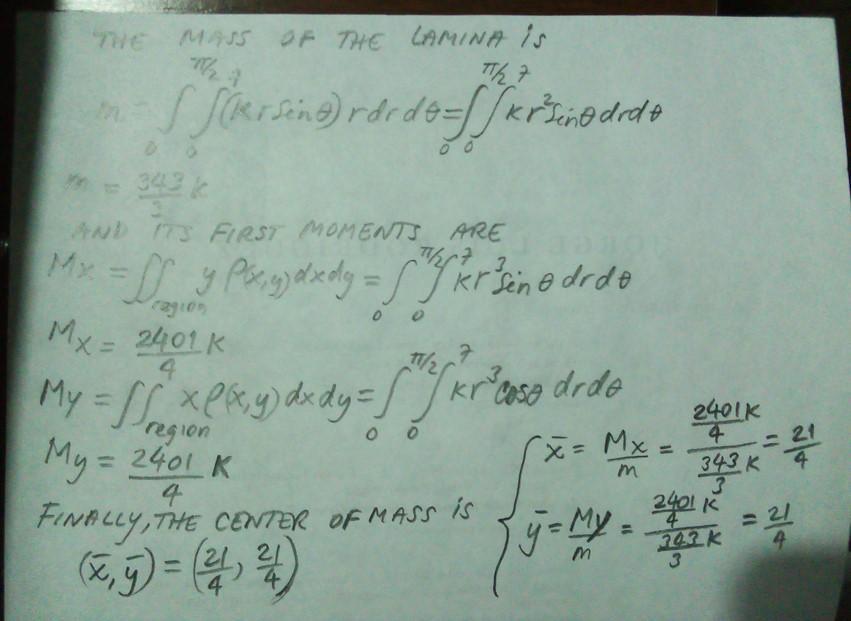 THE MASS OF THE LAMINA is
m = ∫₀^π/2 ∫₀^7 (k r sin θ) r dr dθ = ∫₀^π/2 ∫₀^7 k r² sin θ dr dθ
m = 343/3 k
AND ITS FIRST MOMENTS ARE
Mx = ∫∫region y ρ(x,y) dx dy = ∫₀^π/2 ∫₀^7 k r³ sin θ dr dθ
Mx = 2401/4 k
My = ∫∫region x ρ(x,y) dx dy = ∫₀^π/2 ∫₀^7 k r³ cos θ dr dθ
My = 2401/4 k
FINALLY, THE CENTER OF MASS is
(x̄, ȳ) = (21/4, 21/4)
{ x̄ = Mx/m = (2401/4 k)/(343/3 k) = 21/4
ȳ = My/m = (2401/4 k)/(343/3 k) = 21/4